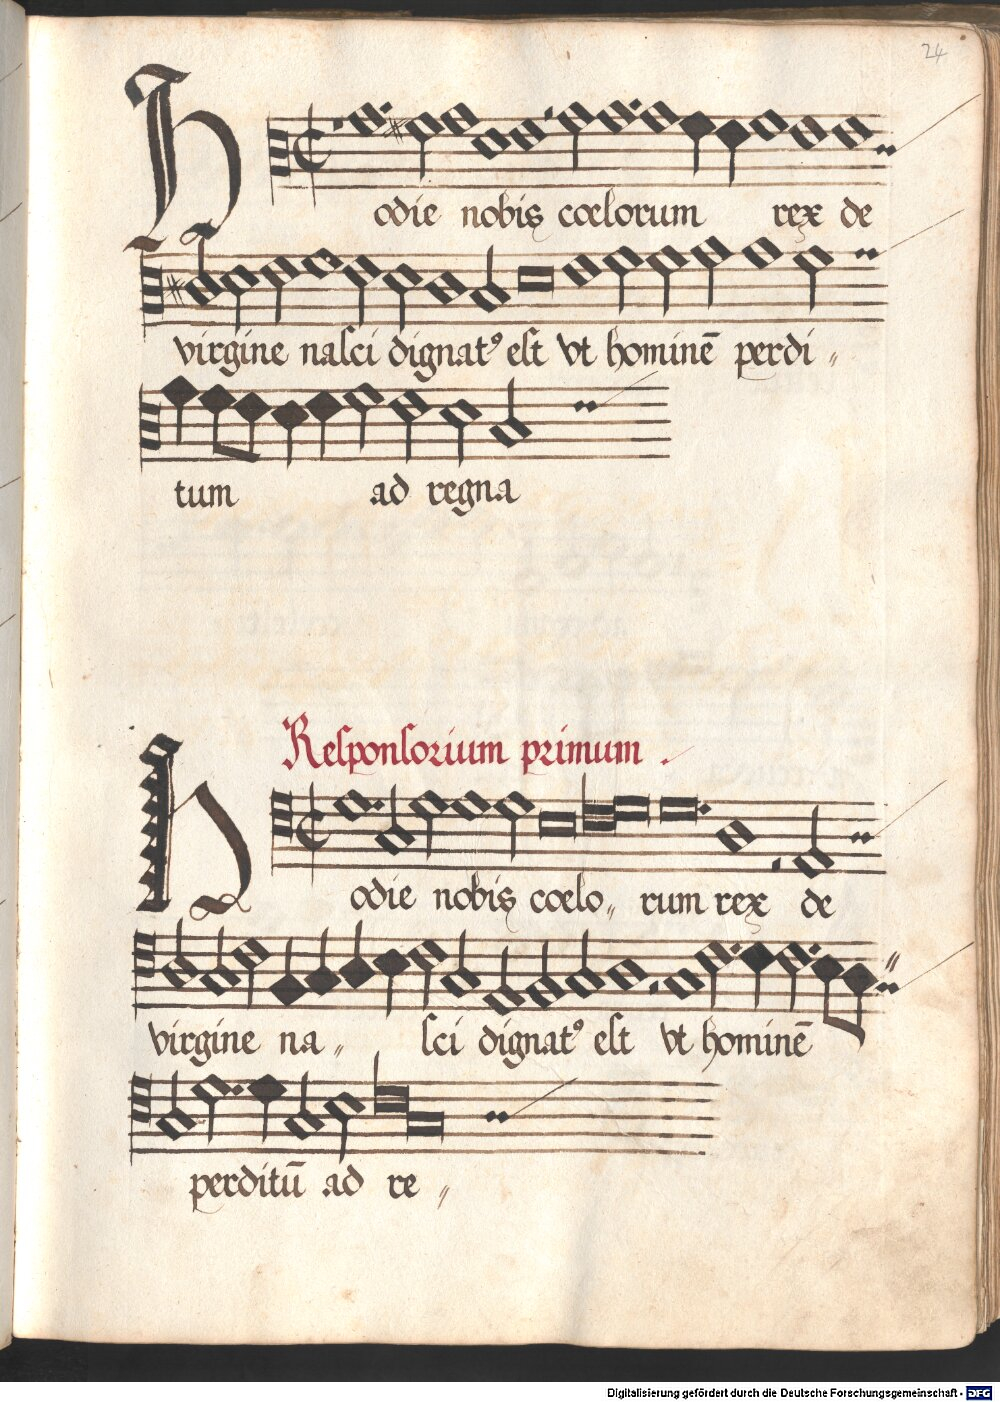 24
Hodie nobis cœlorum rex de
virgine nasci dignatꝰ est vt hominē perdi〃
tum ad regna
Responsorium primum .
Hodie nobis cœlo〃 rum rex de
virgine na〃 sci dignatꝰ est vt hominē
perditū ad re〃
Digitalisierung gefördert durch die Deutsche Forschungsgemeinschaft - DFG